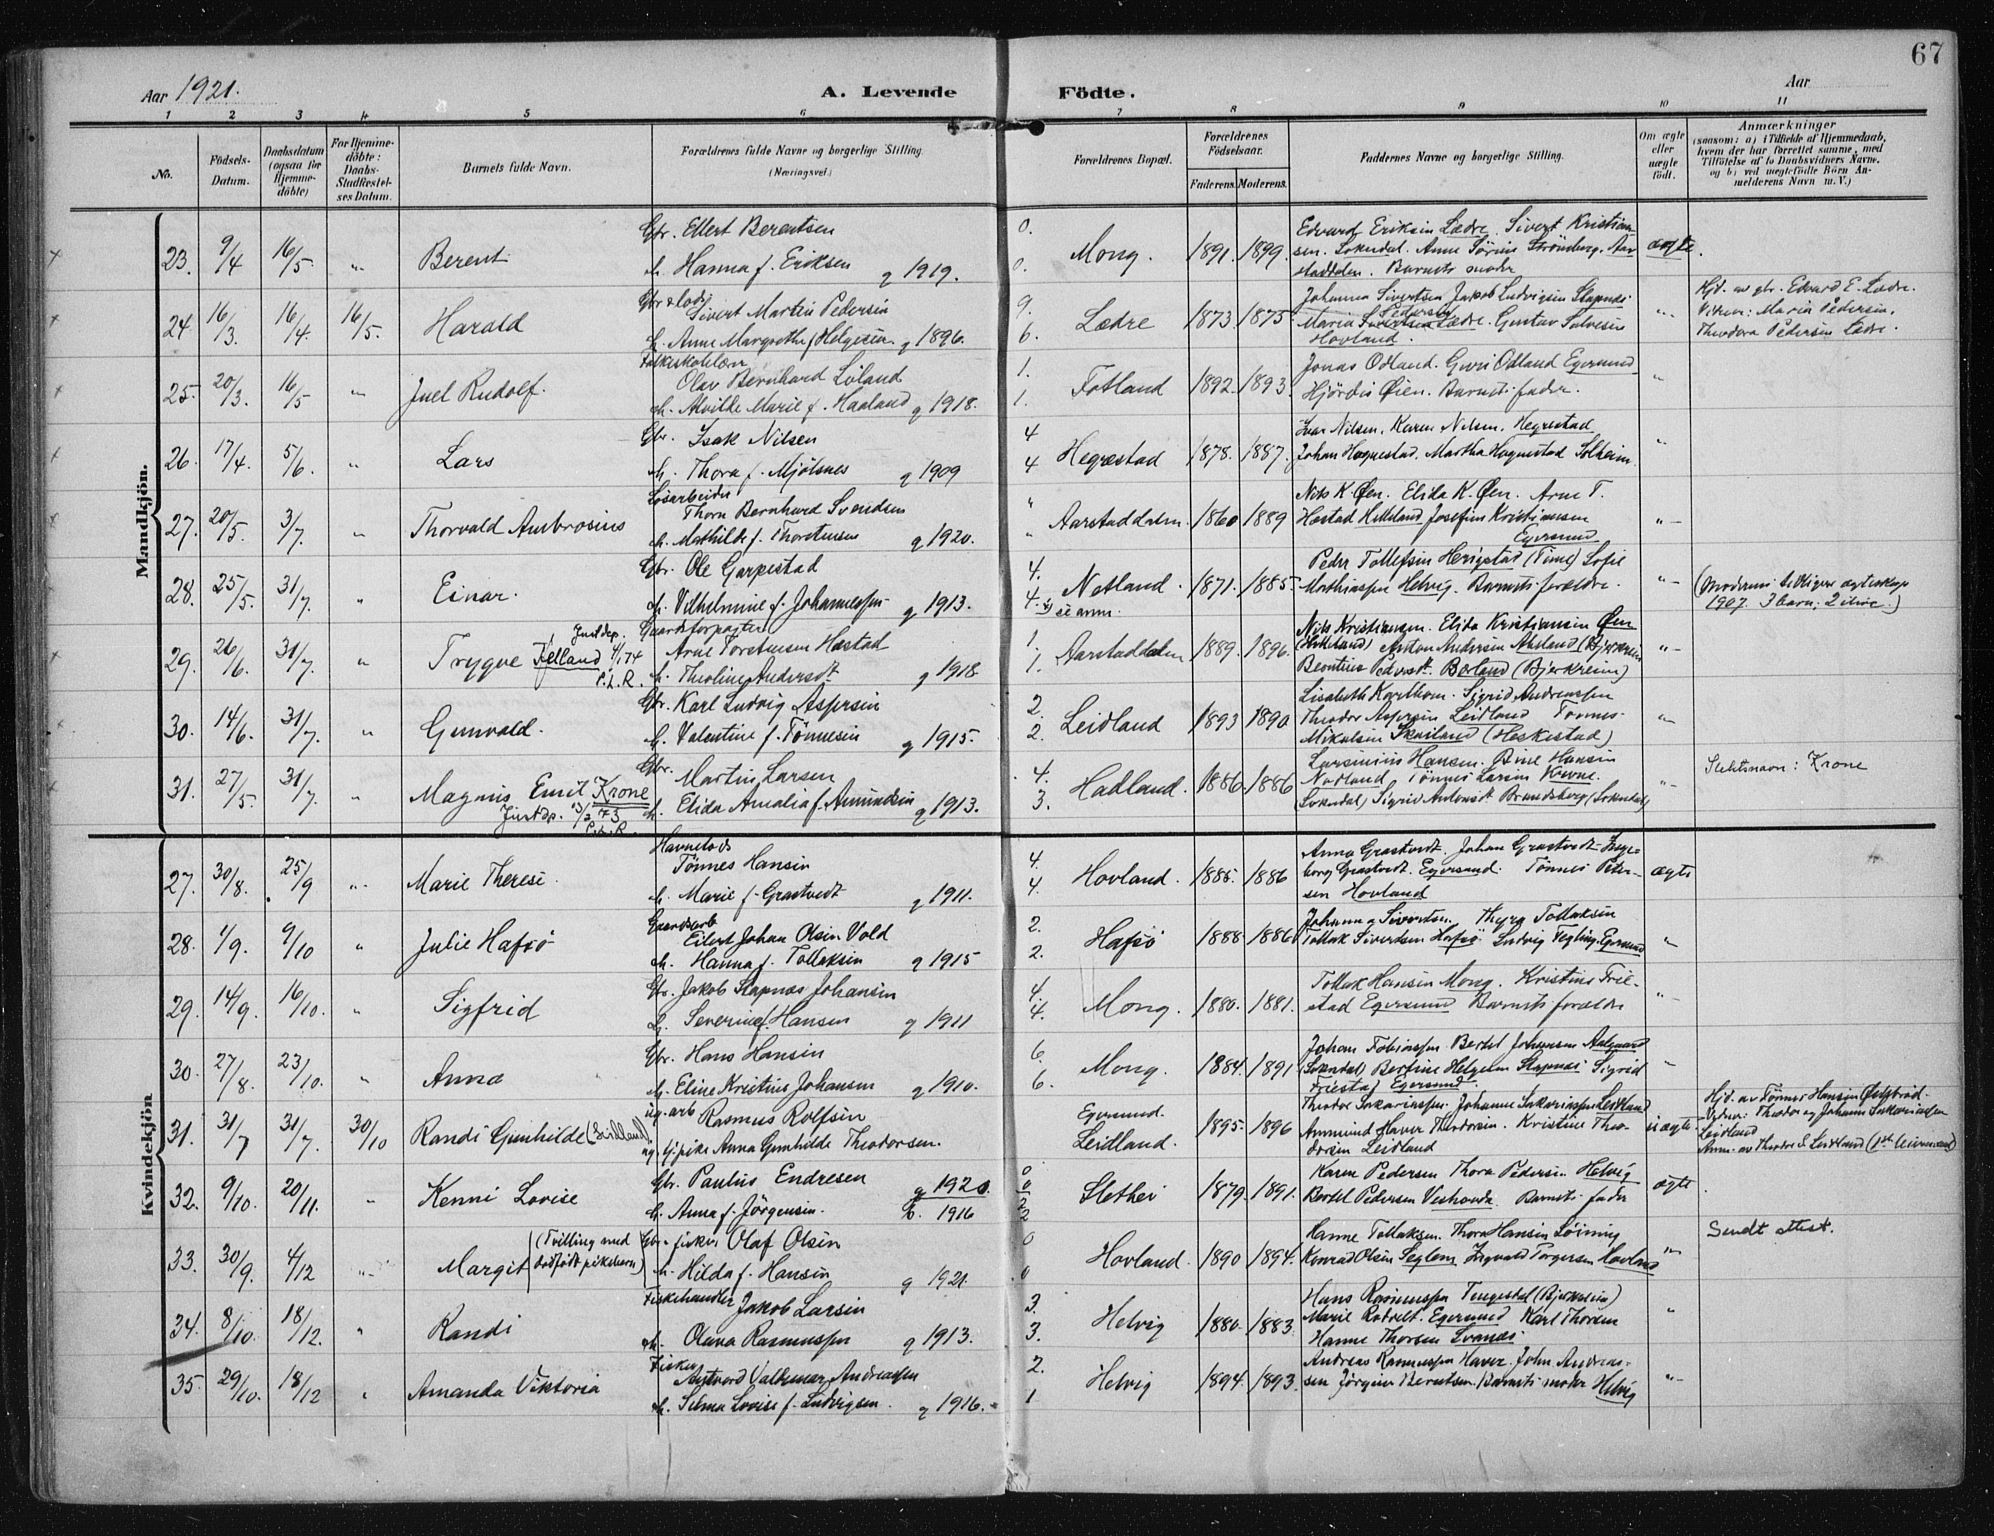 67
Aar 1921.
A. Levende Födte.
Aar
1 2 3 4 5 6 7 8 9 10 11
No.
Födsels-Datum.
Daabsdatum (ogsaa for Hjemmedöbte)
For Hjemmedöbte: Daabs-Stadfæstelses Datum.
Barnets fulde Navn.
Forældrenes fulde Navne og borgerlige Stilling.
(Næringsvei.)
Forældrenes Bopæl.
Forældrenes Födselsaar.
Faderens. Moderens.
Faddernes Navne og borgerlige Stilling.
Om ægte eller uægte födt.
Anmærkninger
(saasom: a) i Tilfælde af Hjemmedaab, hvem der har forrettet samme, med Tilföielse af to Daabsvidners Navne, og b) ved uægtefödte Börn Anmelderens Navn m. V.)
Mandkjön.
23. 9/4 16/5 „ Berent Gbr. Ellert Berentsen
h. Hanna f. Eriksen g 1919.
0. 0. Mong. 1891. 1899. Edvard Eriksen Lædre. Sivert Kristiansen. Sokndal. Anne Sörine Strönberg. Aarstaddalen. Barnets moder ægte.
24. 16/3. 16/4. 16/5. Harald Gbr & lods Sivert Martin Pedersen
h. Anne Margrethe f Helgesen g 1896.
9. 6. Lædre 1873. 1875. Johanna Sivertsen Jakob Ludvigsen Stapnes Maria Pedersen Lædre. Gustav Salvesen Hovland. „ Hjd. av gbr. Edvard E. Lædre. Vidner: Maria Pedersen, Theodora Pedersen Lædre.
25. 20/3. 16/5 „ Juel Rudolf. Folkeskolelærer Olav Bernhard Löland
h. Alvilde Marie f. Haaland g 1918.
1. 1. Fotland 1892. 1893. Jonas Odland. Guri Odland Egersund Hjördis Öien. Barnets fader. „
26. 17/4. 5/6. „ Lars Gbr. Isak Nilsen
h. Thora f. Mjölsnes g 1909
4 4 Hegrestad 1878. 1887. Ivar Nilsen. Karen Nilsen. Hegrestad Johan Hegrestad. Martha Hegrestad Solheim. „
27. 20/5. 3/7. „ Thorvald Ambrosius Lösarbeider Thorn Bernhard Svendsen
h. Mathilde f. Thorstensen g 1920.
„ „ Aarstaddalen. 1860 1889 Nils K. Öen. Elida K. Öen. Arne T. Hæstad Helleland Josefine Kristiansen Egersund „
28. 25/5. 31/7. „ Einar. Gbr. Ole Garpestad
h. Vilhelmine f. Johannessen g 1913.
4. 4. Netland. se anm. 1871. 1885. Peder Tollefsen Herigstad (Time) Sofie Mathiassen Helvig. Barnets forældre. „ (Moderens tidligere ægteskap 1907. 3 barn: 2 ilive.)
29. 26/6. 31/7. „ Trygve Fjelland Just dep. 4/1 74 P.L.R. Gaardsforpagter Arne Torstensen Hæstad
h. Theoline Andersdt g 1918
1. 1. Aarstaddalen 1889. 1896. Nils Kristiansen. Elida Kristiansen Öen (Helleland) Anton Andersen Aksland (Bjerkreim Berntine Pedersdt. Berland (Bjerkreim) „
30. 14/6. 31/7. „ Gunvald. Gbr. Karl Ludvig Aspersen
h. Valentine f. Tönnesen g 1915.
2. 2. Leidland 1893 1890 Lisabeth Karlsen. Sigrid Andreassen Theodor Aspersen Leidland Tönnes Mikalsen Skailand (Heskestad) „
31. 27/5. 31/7. „ Magnus Emil Krone Just dp. 13/2 73 P.L.R. Gbr. Martin Larsen
h. Elida Amalia f. Amundsen g 1913.
4. 3. Hadland. 1886 1886 Larsinius Hansen. Bine Hansen Nadland Tönnes Larsen Krone. Sokndal) Sigrid Antonsdt Brandsberg (Sokndal) „ Slektsnavn: Krone
Kvindekjön
27. 30/8. 25/9 „ Marie Therese. Havnelods Tönnes Hansen
h. Marie f. Grastvedt g 1911.
4. 4. Hovland. 1885. 1886 Anna Grastvedt. Johan Grastvedt. Ingeborg Grastvedt. Egersund. Tönnes Petersen Hovland ægte
28. 1/9. 9/10 „ Julie Hafsö Gaardsarb Eilert Johan Olsen Vold
h. Hanna f. Tollaksen g 1915
2. 2. Hafsö 1888 1886 Johanna Sivertsen. Thyra Tollaksen Tollak Sivertsen Hafsö Ludvig Tegling. Egersund „
29. 14/9. 16/10. „ Sigfrid Gbr. Jakob Stapnæs Johansen
h. Severine f Hansen g 1911
4. 4. Mong. 1880. 1881. Tollak Hansen Mong. Kristine Friestad Egersund Barnets forældre „
30. 27/8. 23/10. „ Anna Gbr. Hans Hansen
h. Eline Kristine Johansen g 1910.
6. 6. Mong. 1884. 1891 Johan Tobiassen Bertel Johansen Aalgaard (Sokndal) Bertine Helgesen Stapnæs Sigrid Friestad Egersund. „
31. 31/7 31/7. 30/10 Randi Gunhilde (Leidland). ug. arb Rasmus Rolfsen
ug. tj. pike Anna Gunhilde Theodorsen.
Egersund. Leidland. 1895. 1896 Theodor Sakariassen. Johanne Sakariassen Leidland Ammund Haver Theodorsen. Kristine Theodorsen Leidland uægte Hjd. av Tönnes Hansen Östebröd. Vidner: Theodor og Johanne Sakariassen Leidland Anm. av Theodor S. Leidland
32. 9/10. 20/11. „ Kenni Lovise Gbr. Paulus Endresen g 1920.
h. Anna f. Jörgensen. 1916
0 0 2 2 Slethei 1879. 1891. Karen Pedersen Thora Pedersen Helvig Bertel Pedersen Veshovda. Barnets fader ægte.
33. 30/9. 4/12 „ Margit (Tvilling med dödfödt pikebarn) Gbr. fisker Olaf Olsen
h. Hilda f. Hansen g 1921.
0 0 Hovland. 1890 1894. Hanne Tollaksen. Thora Hansen Löining Konrad Olsen Seglem Ingvald Torgersen Hovland „ Sendt attest.
34. 8/10. 18/12. „ Randi Fiskehandler Jakob Larsen
h. Olava Rasmussen g 1913.
3. 3. Helvig 1880. 1883. Hans Rasmussen Tengesdal (Bjerkreim) Marie Rodvelt. Egersund Karl Thorsen Hanne Thorsen Svanes „
35. 29/10. 18/12 „ Amanda Viktoria Fisker Valdemar Andreassen
h. Selma Lovise f. Ludvigsen. g 1916.
2. 1 Helvig 1894. 1893. Andreas Rasmussen Haver. John Andreassen Jörgine Berntsen. Barnets moder Helvig „